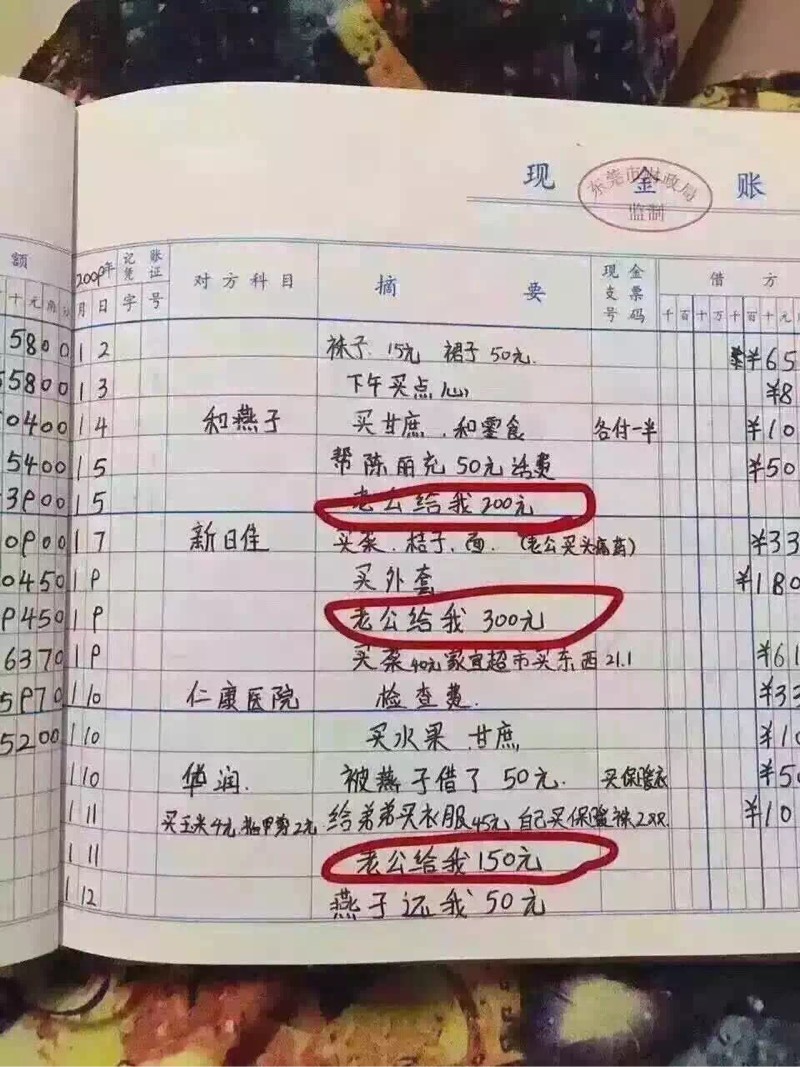 现金账
东莞市财政局
监制
额
2009年
记账
凭证
对方科目
摘要
现金
支票
号码
借方
十元角分
月日字号
千百十万千百十元
5800 1 2 袜子 15元 裙子 50元. ¥65
55800 1 3 下午买点心 ¥8
0400 1 4 和燕子 买甘庶.和零食 各付一半 ¥10
5400 1 5 帮陈丽充50元话费 ¥50
3900 1 5 老公给我200元
0900 1 7 新日佳 买菜.桔子.面.(老公买头痛药) ¥33
0450 1 9 买外套 ¥180
9450 1 9 老公给我300元
6370 1 9 买菜40元家宜超市买东西21.1 ¥61
5970 1 10 仁康医院 检查费. ¥33
5200 1 10 买水果.甘庶 ¥10
1 10 华润. 被燕子借了50元. 买保暖衣 ¥50
1 11 买玉米4元 指甲剪2元 给弟弟买衣服45元 自己买保暖裤 ¥10
1 11 老公给我150元
1 12 燕子还我50元